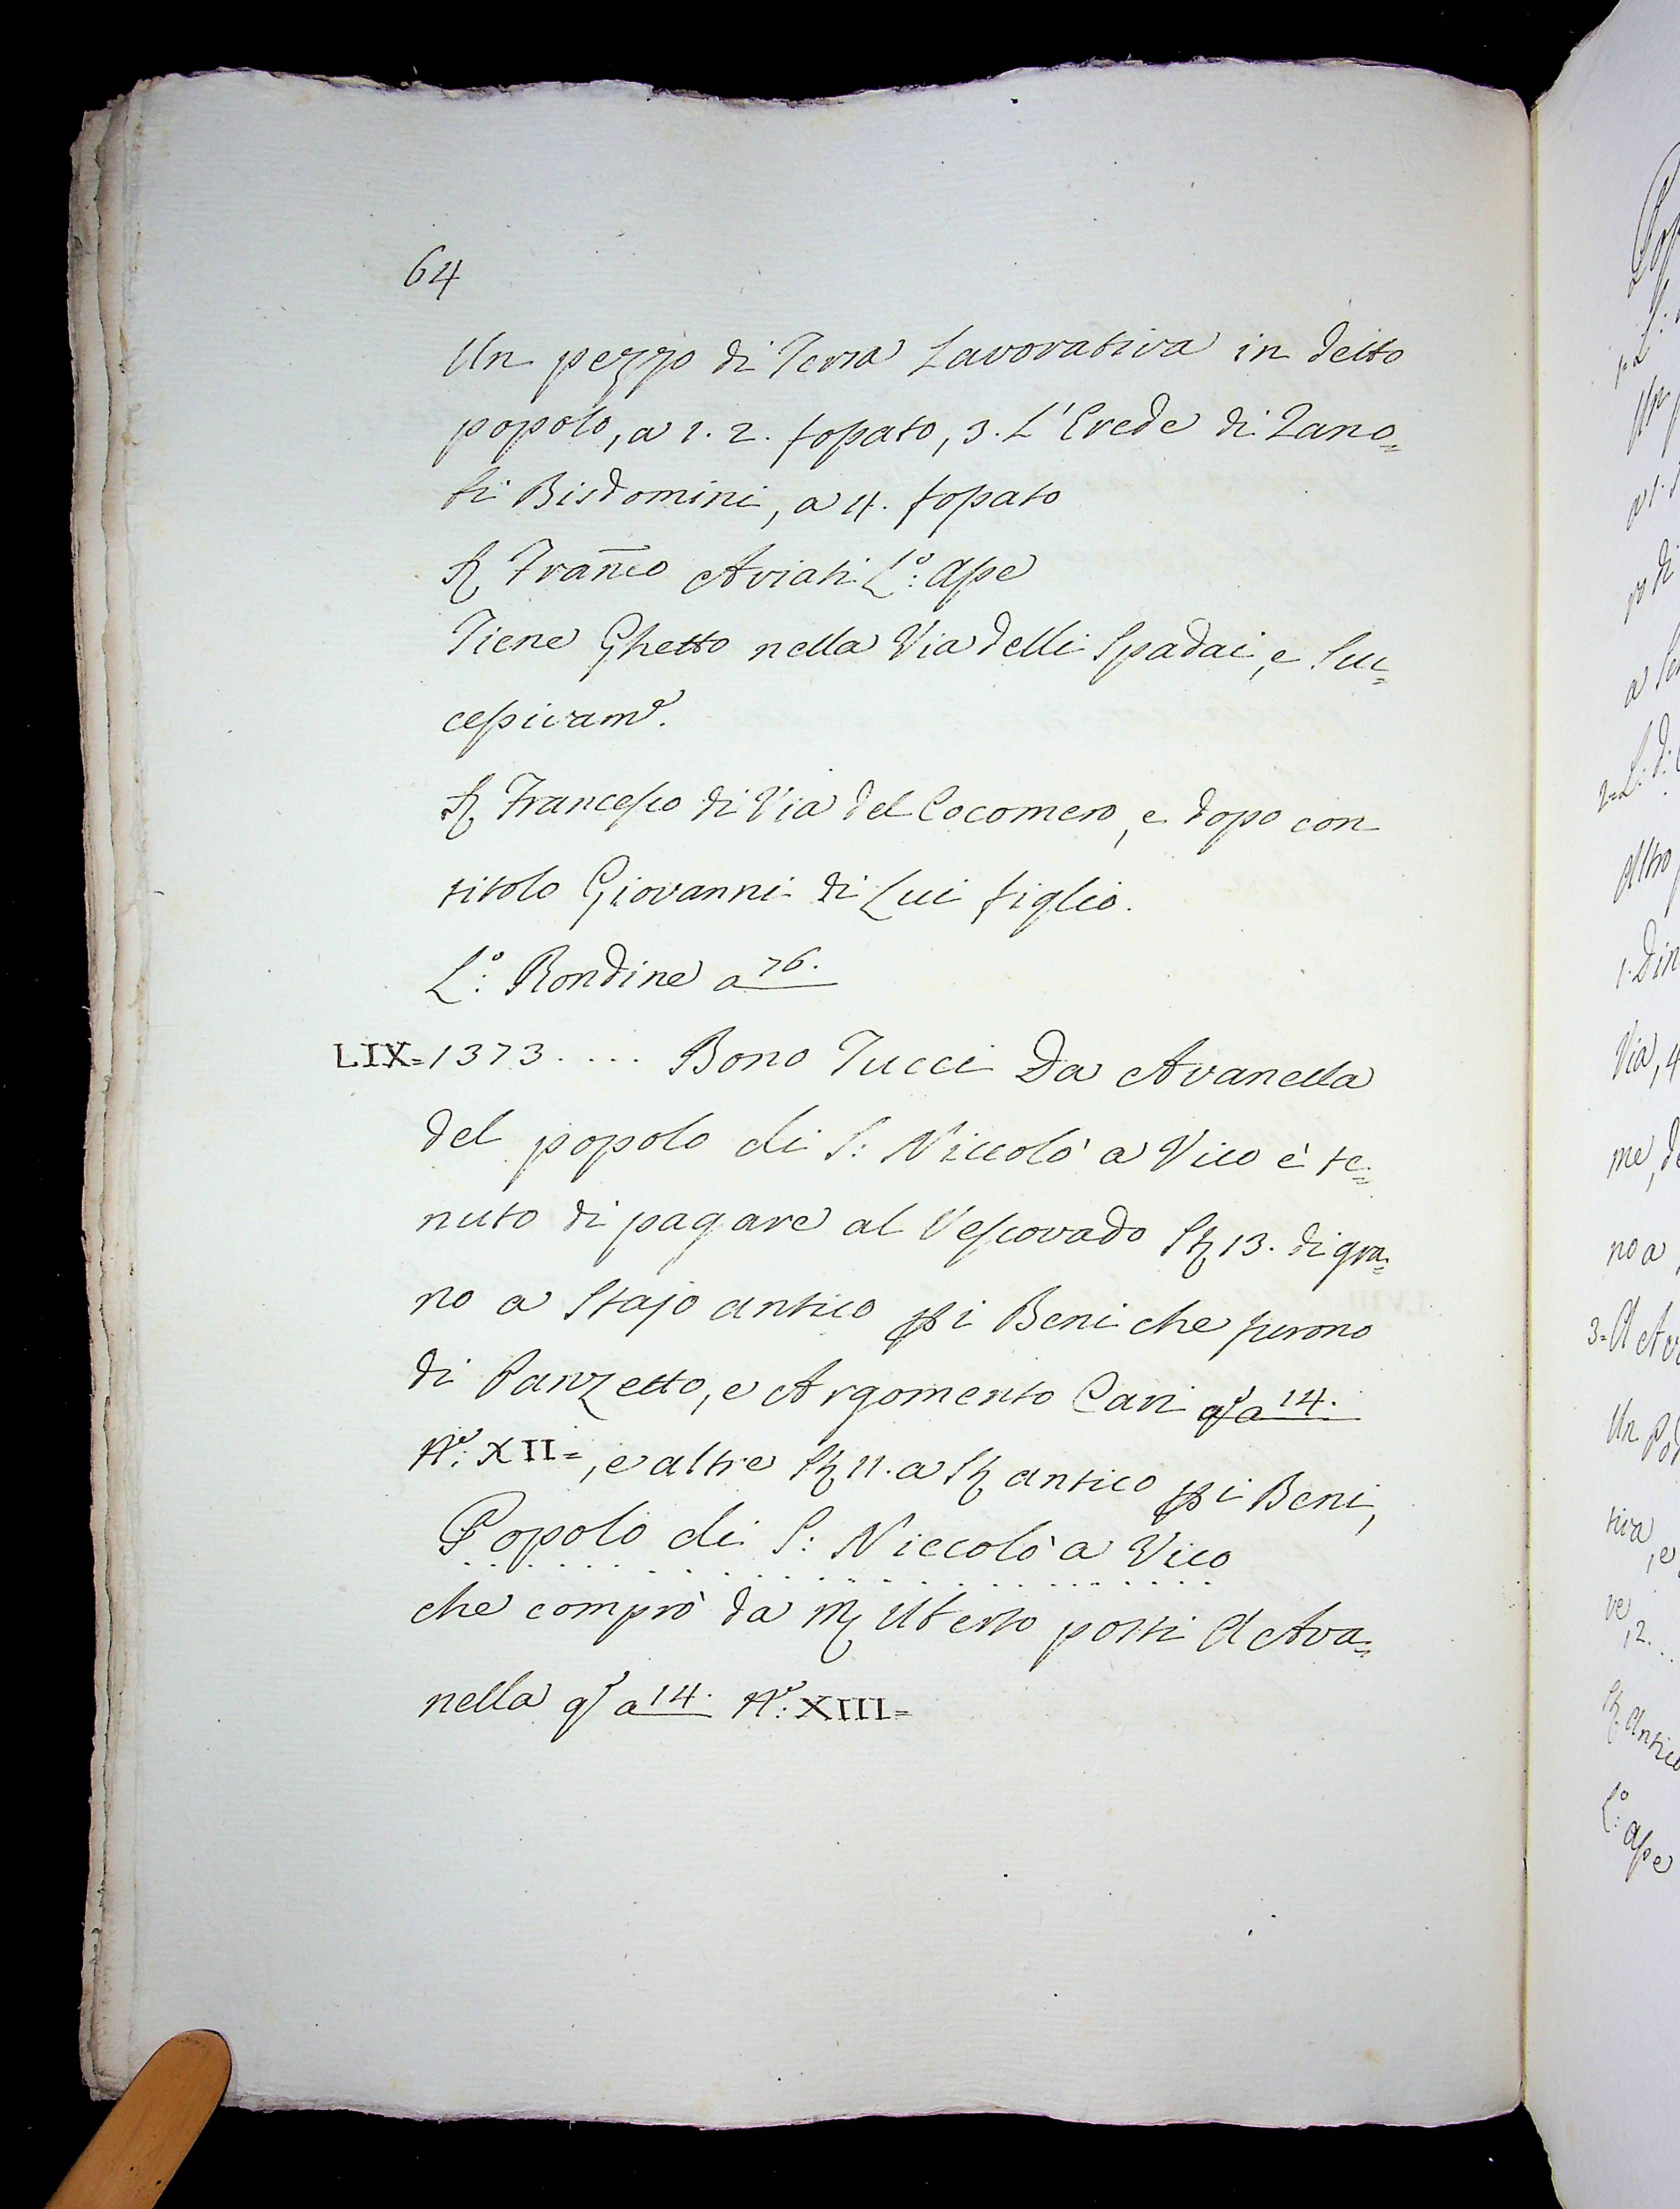 64
Un pezzo di Terra Lavorativa in detto
popolo, a 1. 2. fossato, 3. L'Erede di Zano=
bi Bisdomini, a 4. fossato
Franco Aviati L.º: Asse
Tiene Ghetto nella Via delli Spadai, e Suc=
cessivam.e.
Francesco di Via del Cocomero, e dopo con
titolo Giovanni di Lui figlio.
L.º: Rondine a 76.
LIX=1373. . . . Bono Tucci Da Avanella
del popolo di S: Niccolò a Vico è te=
nuto di pagare al Vescovado St 13. di gra=
no a Stajo antico pp i Beni che furono
di Panzetto, e Argomento Cari qs a 14.
N.º: XII=, e altre St 11. a St antico pp i Beni,
Popolo di S: Niccolò a Vico
che comprò da M Uberto posti Ad Ava=
nella qs a 14. N.º: XIII=